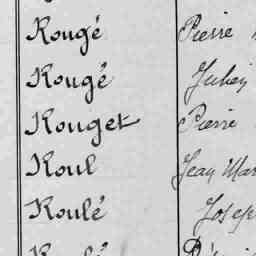 Rougé Pierre
Rougé Julien
Rouget Pierre
Roul Jean Mar
Roulé Josep